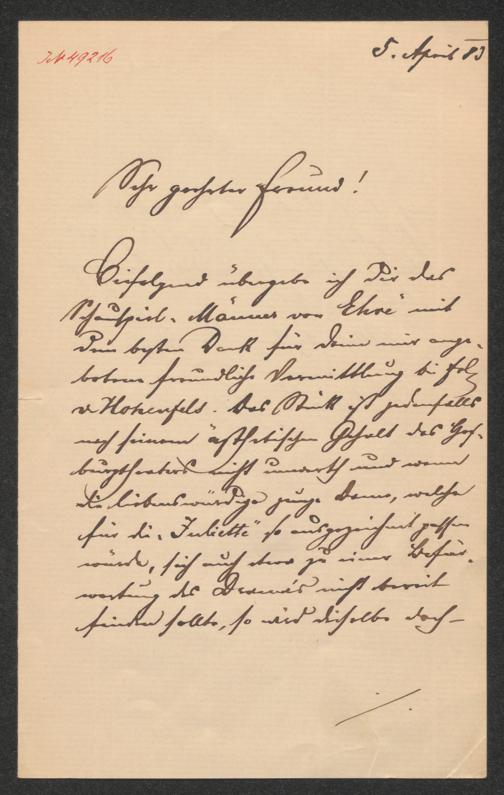 JN 49216
5. April 83
Sehr geehrter Freund!
Beifolgend übergebe ich Dir das
Schauspiel „Männer von Ehre“ mit
dem besten Dank für Deine mir ange-
botene freundliche Vermittlung bei Frl.
v. Hohenfels. Das Stück ist jedenfalls
nach seinem ästhetischen Gehalt des Hof-
burgtheaters nicht unwerth und wenn
die liebenswürdige junge Dame, welche
für die „Juliette“ so ausgezeichnet passen
würde, sich auch etwa zu einer Befür-
wortung des Drama's nicht bereit
finden sollte, so wird dieselbe doch –
./.